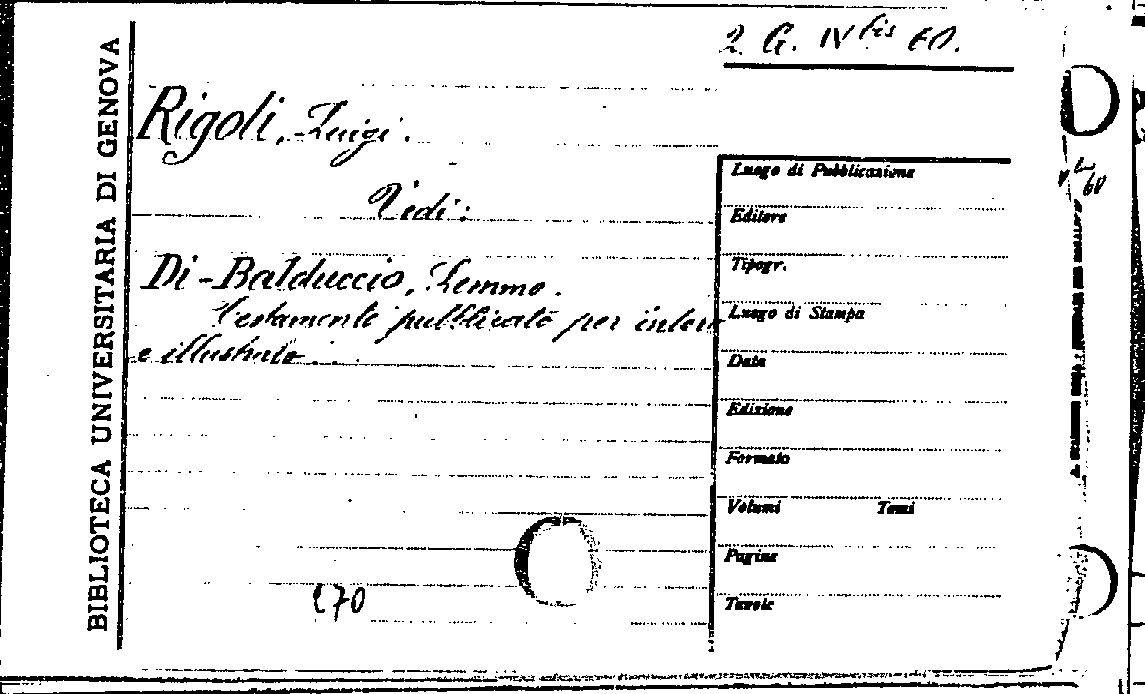 2. G. IV bis 60.
BIBLIOTECA UNIVERSITARIA DI GENOVA
Rigoli, Luigi.
Vedi:
Di-Balduccio, Lemmo.
Testamento pubblicato per intero
e illustrato...
Luogo di Pubblicazione
Editore
Tipogr.
Luogo di Stampa
Data
Edizione
Formato
Volumi Tomi
Pagine
Tavole
270
60